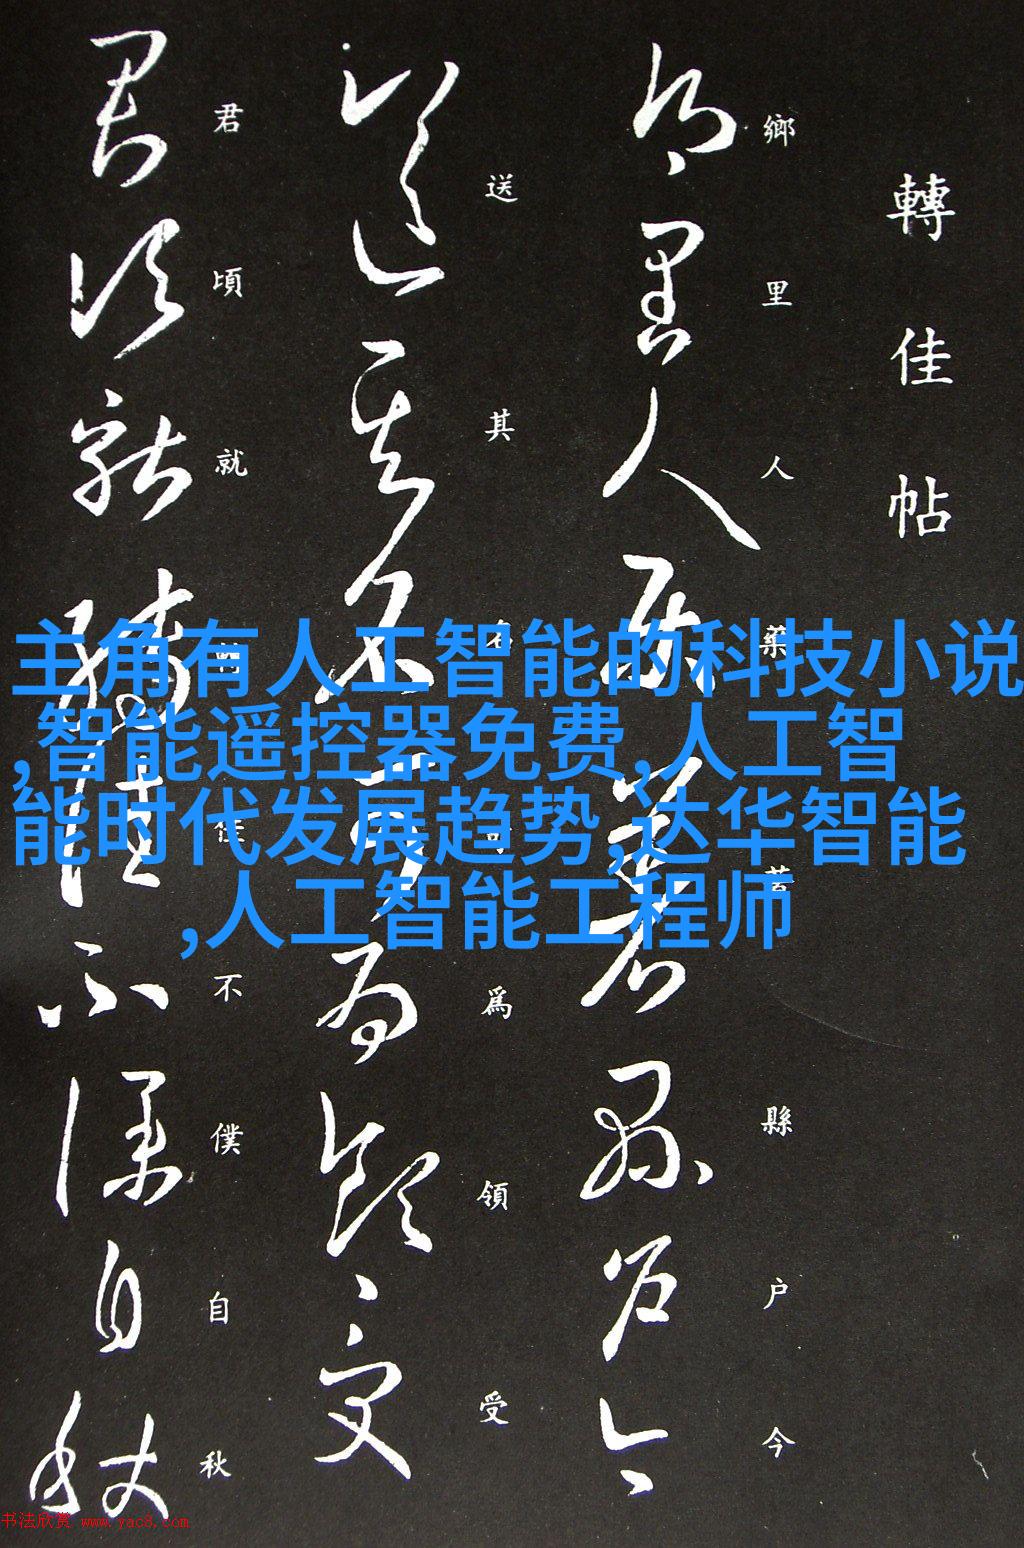 轉佳帖
鄉里人藥
縣户今
送其名
爲領受
君頃就
轉佳
不僕自秋
主角有人工智能的科技小说
,智能遥控器免费,人工智
能时代发展趋势,达华智能
,人工智能工程师
书法欣赏 www.yac8.com